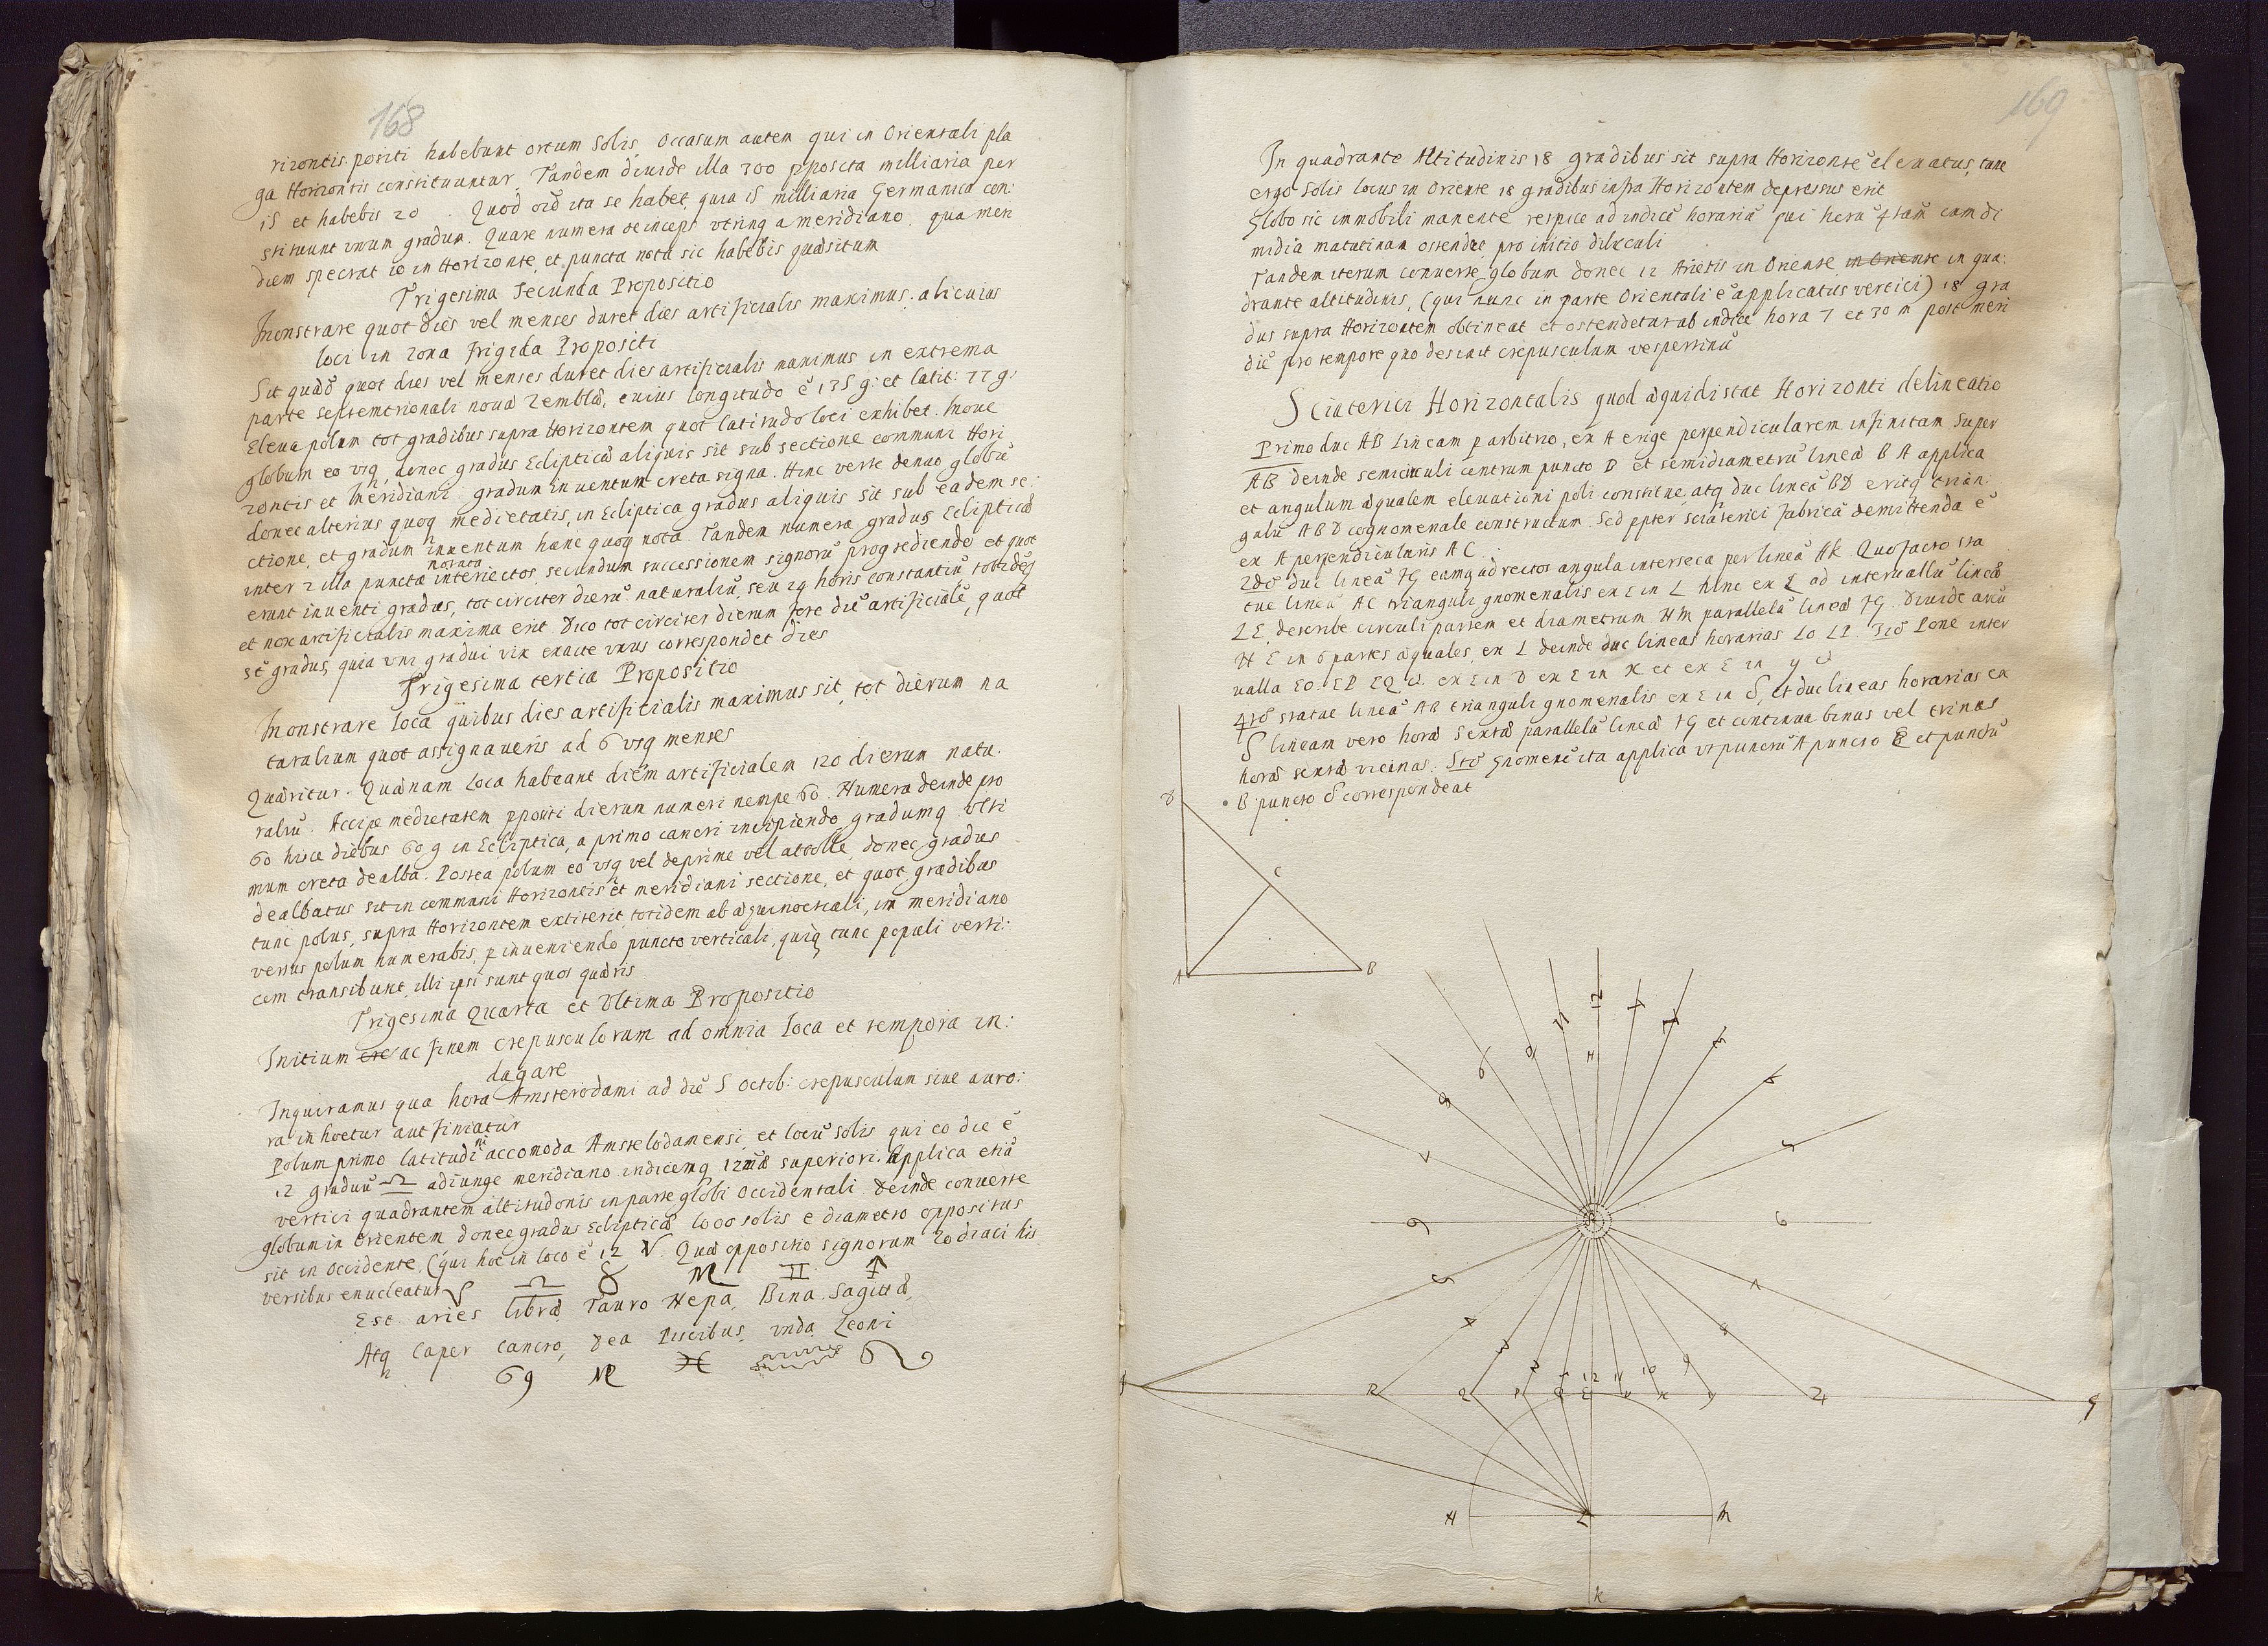 168
rizontis positi habebunt ortum Solis, Occasum autem qui in Orientali pla
ga Horizontis constituuntur. Tandem diuide illa 300 pposita milliaria per
15 et habebis 20. Quod ita se habet, quia 15 milliaria Germanica con:
stituunt unum gradum. Quare numera deinceps utrinq a meridiano. qua meri
diem spectat 20 in Horizonte, et puncta nota sic habebis quæsitum
Trigesima Secunda Propositio
Monstrare quot dies vel menses duret dies artificialis maximus alicuius
loci in zona frigida Propositi
Sit quæsitū quot dies vel menses duret dies artificialis maximus in extrema
parte septemtrionali noua Zembla, cuius longitudo ē 135 g: et latit: 77 g:
Eleua polum tot gradibus supra Horizontem quot latitudo loci exhibet. Moue
globum eo usq donec gradus Eclipticæ aliquis sit sub sectione communi Hori
zontis et Meridiani: gradum inuentum creta signa. Hinc verte denuo globū
donec alterius quoq medietatis, in Ecliptica gradus aliquis sit sub eadem se:
ctione, et gradum inuentum hanc quoq nota. Tandem numera gradus Eclipticæ
inter 2 illa puncta notata interiectos, secundum successionem signorū progrediendo et quot
erunt inuenti gradus, tot circiter dierū naturaliū, seu 24 horis constantiū totidēq
et nox artificialis maxima erit. Dico tot circiter dierum fere diē artificialē, quot
st̄ gradus, quia uni gradui vix exacte unus correspondet dies
Trigesima tertia Propositio
Monstrare loca quibus dies artificialis maximus sit, tot dierum na
turalium quot assignaueris ad 6 usq menses
Quæritur. Quænam loca habeant diem artificialem 120 dierum natu:
raliū. Accipe medietatem ppositi dierum numeri nempe 60. Numera deinde pro
60 hisce diebus 60 g in Ecliptica, a primo cancri incipiendo, gradumq ulti
mum creta dealba. Postea polum eo usq vel deprime vel attolle, donec gradus
dealbatus sit in communi Horizontis et meridiani sectione, et quot gradibus
tunc polus, supra Horizontem extiterit, totidem ab æquinoctiali, in meridiano
versus polum numerabis, p inueniendo puncto verticali, quiq tunc populi verti:
cem transibunt, illi ipsi sunt quos quæris
Trigesima Quarta et Ultima Propositio
Initium cre ac finem crepusculorum ad omnia loca et tempora in:
dagare
Inquiramus qua hora Amsterodami ad diē 5 Octob: crepusculum siue auro:
ra inhoetur aut finiatur
Polum primo latitudini accomoda Amstelodamensi, et locū solis qui eo die ē
12 graduū ♎ adiunge meridiano indicemq 12mæ superiori. Applica etiā
vertici quadrantem altitudonis in parte globi Occidentali. Deinde conuerte
globum in Orientem donec gradus Eclipticæ loco solis e diametro oppositus
sit in Occidente, (qui hoc in loco ē 12 ♈. Quæ oppositio signorum Zodiaci his
versibus enucleatur ♈ ♎ ♉ ♏ ♊ ♐
Est aries libræ, Tauro Nepa, Bina Sagittæ,
Atq Caper Cancro, Dea Piscibus, unda Leoni
♋ ♍ ♓ ♒ ♌
169
In quadrante Altitudinis 18 gradibus sit supra Horizontē eleuatus, tunc
ergo Solis locus in Oriente 18 gradibus infra Horizontem depressus erit
Globo sic immobili manente respice ad indicē horariū qui horā 4tam cum di
midia matutinam ostendet pro initio diluculi
Tandem iterum conuerte globum donec 12 Arietis in Oriente in Oriente in qua:
drante altitudinis, (qui nunc in parte Orientali ē applicatus vertici) 18 gra
dus supra Horizontem obtineat et ostendetur ab indice hora 7 et 30 m post meri
diē pro tempore quo desinit crepusculum vespertinū
Sciaterici Horizontalis quod æquidistat Horizonti delineatio
Primo duc AB lineam p arbitrio, ex A erige perpendicularem infinitam super
AB deinde semicirculi centrum puncto B et semidiametrū lineæ BA applica
et angulum æqualem eleuationi poli constitue, atq duc lineā BD eritq trian:
gulū ABD cognomenale constructum. Sed ppter sciaterici fabricā demittenda ē
ex A perpendicularis AC.
2do duc lineā FG eamq ad rectos angula interseca per lineā HK. Quo facto sta
tue lineā AC trianguli gnomenalis ex E in L hinc ex L ad interuallū lineæ
LE, describe circuli partem et diametrum Hm parallelū lineæ FG. Diuide arcū
H E in 6 partes æquales, ex L deinde duc lineas horarias LO LP. 3tio Pone inter
ualla EO. EP EQ &. ex E in D ex E in X et ex E in y &
4to statue lineā AB trianguli gnomenalis ex E in S, et duc lineas horarias ex
S lineam vero horæ sextæ parallelū lineæ FG et continua binas vel trinas
horæ sextæ vicinas. 5to gnomenē ita applica ut punctū A puncto E et punctū
B puncto S correspondeat
D
C
A
B
12
11
H
9
6
8
7
6
5
4
3
2
1
12
11
10
9
8
7
6
5
R
Q
P
E
G
H
L
m
K